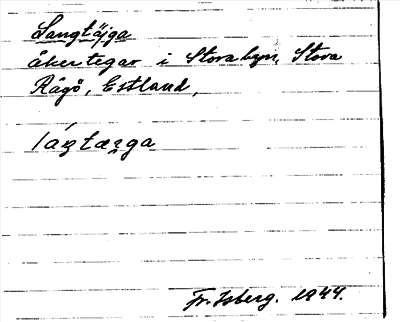 Langtäjga
åkertegar i Storabyn, Stora
Rågö, Estland,
láŋtæŋga
Fr. Isberg. 1944.